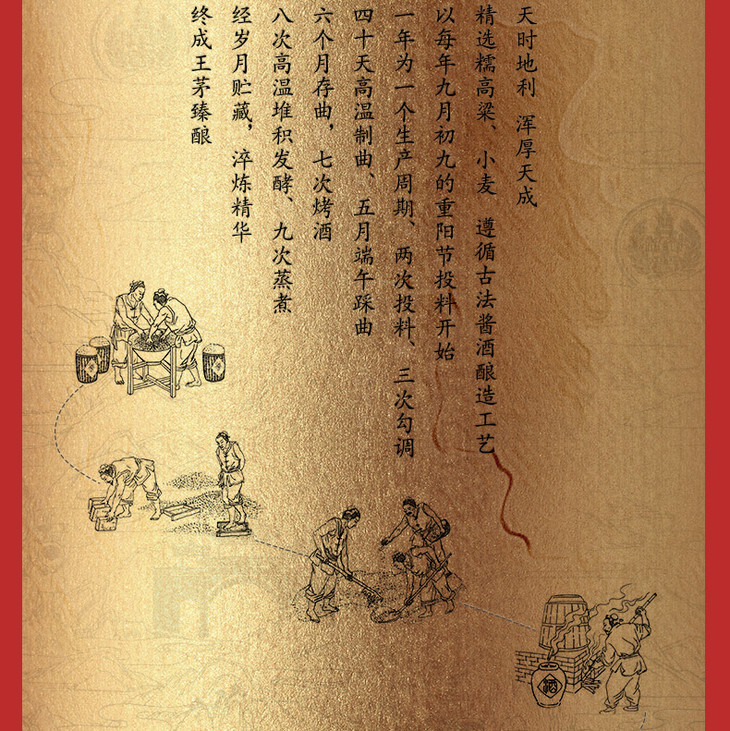 天时地利 浑厚天成
精选糯高粱、小麦 遵循古法酱酒酿造工艺
以每年九月初九的重阳节投料开始
一年为一个生产周期、两次投料、三次勾调
四十天高温制曲、五月端午踩曲
六个月存曲，七次烤酒
八次高温堆积发酵、九次蒸煮
经岁月贮藏，淬炼精华
终成王茅臻酿
酒